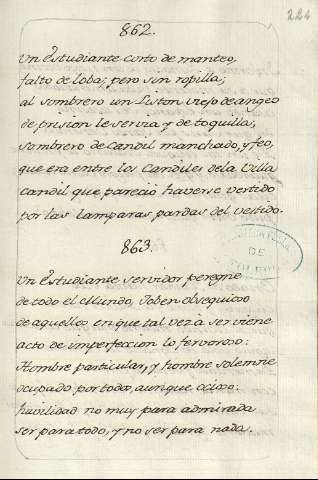 224
862.
Un Estudiante corto de manteo,
falto de loba; pero sin ropilla;
al sombrero un liston viejo de angeo
de prision le servia y de toquilla;
sombrero de candil manchado, y feo,
que era entre los Candiles dela Villa
candil que pareció haverse vertido
por las lamparas pardas del vestido.
863.
Un Estudiante servidor peregne
de todo el Mundo, Joben obsequioso
de aquellos en que tal vez à ser viene
acto de imperfeccion lo fervoroso:
Hombre particular, y hombre solemne
ocupado por todos, aunque ocioso:
habilidad no muy para admirada
ser para todo, y no ser para nada.
DE